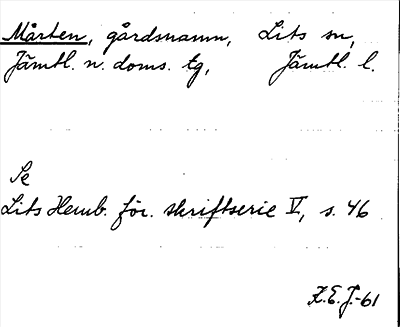 Mårten, gårdsnamn, Lits sn,
Jämtl. n. doms. tg, Jämtl. l.
Se
Lits Hemb. för. skriftserie V, s. 46
Z.E.J.-61